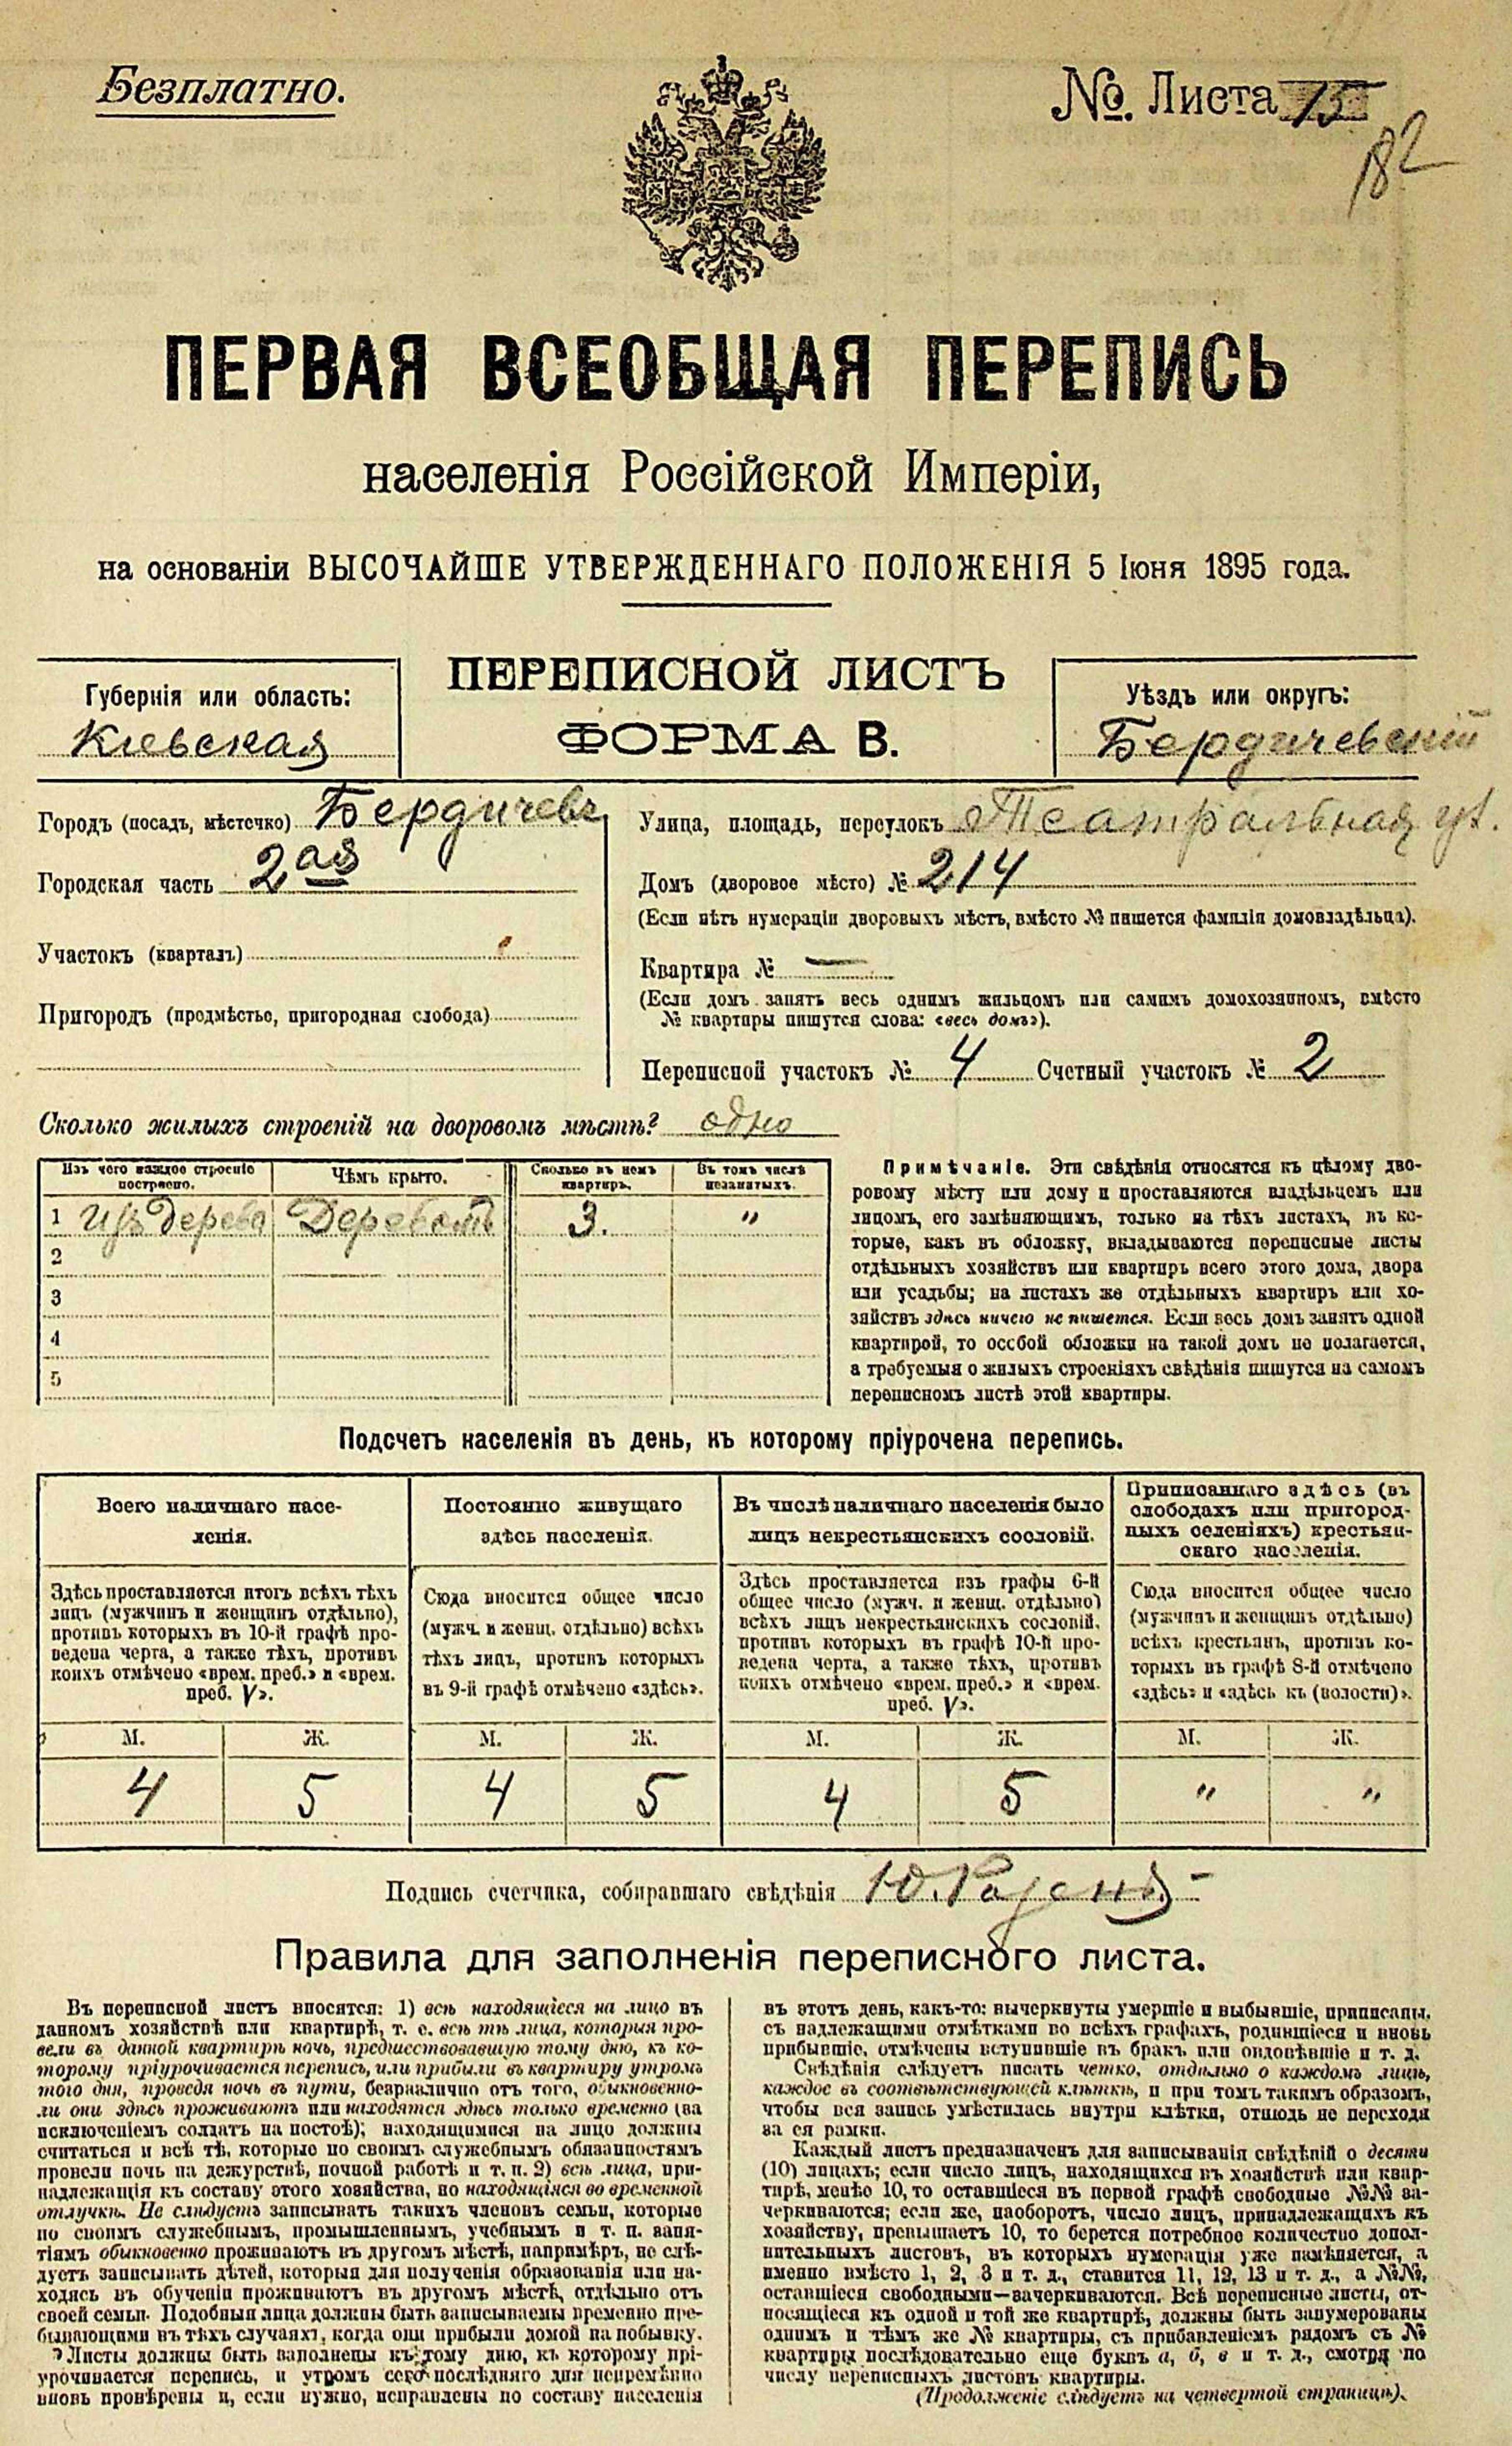 Безплатно.
№. Листа 15
182
ПЕРВАЯ ВСЕОБЩАЯ ПЕРЕПИСЬ
населенія Россійской Имперіи,
на основаніи ВЫСОЧАЙШЕ УТВЕРЖДЕННАГО ПОЛОЖЕНІЯ 5 Іюня 1895 года.
Губернія или область:
Кіевская
ПЕРЕПИСНОЙ ЛИСТЪ
ФОРМА В.
Уѣздъ или округъ:
Бердичевскій
Городъ (посадъ, мѣстечко) Бердичевъ
Городская часть 2ая
Участокъ (кварталъ)
Пригородъ (предмѣстье, пригородная слобода)
Улица, площадь, переулокъ Театральная ул.
Домъ (дворовое мѣсто) № 214
(Если нѣтъ нумераціи дворовыхъ мѣстъ, вмѣсто № пишется фамилія домовладѣльца).
Квартира № —
(Если домъ занятъ весь однимъ жильцомъ или самимъ домохозяиномъ, вмѣсто
№ квартиры пишутся слова: «весь домъ»).
Переписной участокъ № 4 Счетный участокъ № 2
Сколько жилыхъ строеній на дворовомъ мѣстѣ? одно
Изъ чего каждое строеніе построено.
Чѣмъ крыто.
Сколько въ немъ квартиръ.
Въ томъ числѣ незанятыхъ.
1 Изъ дерева Деревомъ 3. "
2
3
4
5
Примѣчаніе. Эти свѣдѣнія относятся къ цѣлому дво-
ровому мѣсту или дому и проставляются владѣльцемъ или
лицомъ, его замѣняющимъ, только на тѣхъ листахъ, въ ко-
торые, какъ въ обложку, вкладываются переписные листы
отдѣльныхъ хозяйствъ или квартиръ всего этого дома, двора
или усадьбы; на листахъ же отдѣльныхъ квартиръ или хо-
зяйствъ здѣсь ничего не пишется. Если весь домъ занятъ одной
квартирой, то особой обложки на такой домъ не полагается,
а требуемыя о жилыхъ строеніяхъ свѣдѣнія пишутся на самомъ
переписномъ листѣ этой квартиры.
Подсчетъ населенія въ день, къ которому пріурочена перепись.
Всего наличнаго насе-
ленія.
Здѣсь проставляется итогъ всѣхъ тѣхъ
лицъ (мужчинъ и женщинъ отдѣльно),
противъ которыхъ въ 10-й графѣ про-
ведена черта, а также тѣхъ, противъ
коихъ отмѣчено «врем. преб.» и «врем.
преб. V».
М. Ж.
4 5
Постоянно живущаго
здѣсь населенія.
Сюда вносится общее число
(мужч. и женщ. отдѣльно) всѣхъ
тѣхъ лицъ, противъ которыхъ
въ 9-й графѣ отмѣчено «здѣсь».
М. Ж.
4 5
Въ числѣ наличнаго населенія было
лицъ некрестьянскихъ сословій.
Здѣсь проставляется изъ графы 6-й
общее число (мужч. и женщ. отдѣльно)
всѣхъ лицъ некрестьянскихъ сословій,
противъ которыхъ въ графѣ 10-й про-
ведена черта, а также тѣхъ, противъ
коихъ отмѣчено «врем. преб.» и «врем.
преб. V».
М. Ж.
4 5
Приписаннаго здѣсь (въ
слободахъ или пригород-
ныхъ селеніяхъ) крестьян-
скаго населенія.
Сюда вносится общее число
(мужчинъ и женщинъ отдѣльно)
всѣхъ крестьянъ, противъ ко-
торыхъ въ графѣ 8-й отмѣчено
«здѣсь» и «здѣсь къ (волости)».
М. Ж.
" "
Подпись счетчика, собиравшаго свѣдѣнія Ю.
Правила для заполненія переписного листа.
Въ переписной листъ вносятся: 1) всѣ находящіеся на лицо въ
данномъ хозяйствѣ или квартирѣ, т. е. всѣ тѣ лица, которыя про-
вели въ данной квартирѣ ночь, предшествовавшую тому дню, къ ко-
торому пріурочивается перепись, или прибыли въ квартиру утромъ
того дня, проведя ночь въ пути, безразлично отъ того, обыкновенно-
ли они здѣсь проживаютъ или находятся здѣсь только временно (за
исключеніемъ солдатъ на постоѣ); находящимися на лицо должны
считаться и всѣ тѣ, которые по своимъ служебнымъ обязанностямъ
провели ночь на дежурствѣ, ночной работѣ и т. п. 2) всѣ лица, при-
надлежащія къ составу этого хозяйства, но находящіяся во временной
отлучкѣ. Не слѣдуетъ записывать такихъ членовъ семьи, которые
по своимъ служебнымъ, промышленнымъ, учебнымъ и т. п. заня-
тіямъ обыкновенно проживаютъ въ другомъ мѣстѣ, напримѣръ, не слѣ-
дуетъ записывать дѣтей, которыя для полученія образованія или на-
ходясь въ обученіи проживаютъ въ другомъ мѣстѣ, отдѣльно отъ
своей семьи. Подобныя лица должны быть записываемы временно пре-
бывающими въ тѣхъ случаяхъ, когда они прибыли домой на побывку.
Листы должны быть заполнены къ тому дню, къ которому прі-
урочивается перепись, и утромъ сего послѣдняго дня непремѣнно
вновь провѣрены и, если нужно, исправлены по составу населенія
въ этотъ день, какъ-то: вычеркнуты умершіе и выбывшіе, приписаны,
съ надлежащими отмѣтками во всѣхъ графахъ, родившіеся и вновь
прибывшіе, отмѣчены вступившіе въ бракъ или овдовѣвшіе и т. д.
Свѣдѣнія слѣдуетъ писать четко, отдѣльно о каждомъ лицѣ,
каждое въ соотвѣтствующей клѣткѣ, и при томъ такимъ образомъ,
чтобы вся запись умѣстилась внутри клѣтки, отнюдь не переходя
за ея рамки.
Каждый листъ предназначенъ для записыванія свѣдѣній о десяти
(10) лицахъ; если число лицъ, находящихся въ хозяйствѣ или квар-
тирѣ, менѣе 10, то оставшіеся въ первой графѣ свободные №№ за-
черкиваются; если же, наоборотъ, число лицъ, принадлежащихъ къ
хозяйству, превышаетъ 10, то берется потребное количество допол-
нительныхъ листовъ, въ которыхъ нумерація уже измѣняется, а
именно вмѣсто 1, 2, 3 и т. д., ставится 11, 12, 13 и т. д., а №№,
оставшіеся свободными—зачеркиваются. Всѣ переписные листы, от-
носящіеся къ одной и той же квартирѣ, должны быть занумерованы
однимъ и тѣмъ же № квартиры, съ прибавленіемъ рядомъ съ №
квартиры послѣдовательно еще буквъ а, б, в и т. д., смотря по
числу переписныхъ листовъ квартиры.
(Продолженіе слѣдуетъ на четвертой страницѣ).